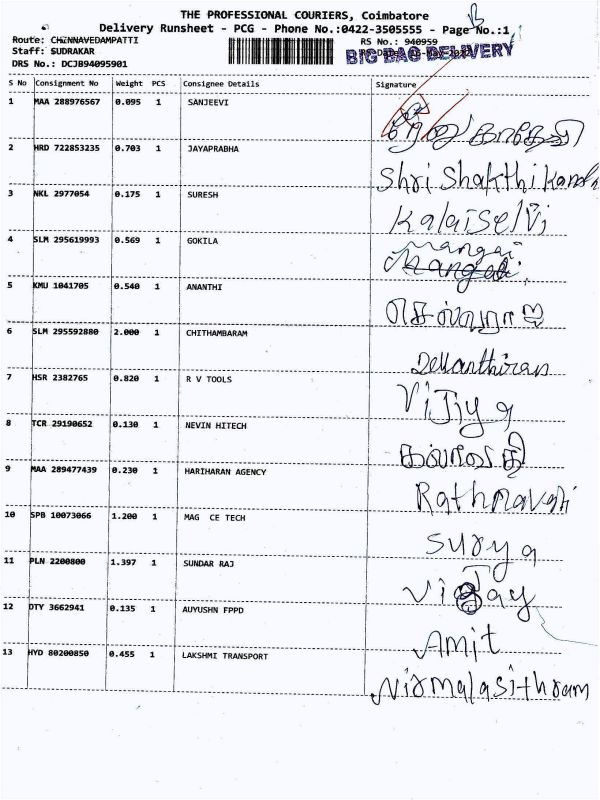 THE PROFESSIONAL COURIERS, Coimbatore
Delivery Runsheet - PCG - Phone No.:0422-3505555 - Page No.:1
Route: CHINNAVEDAMPATTI RS No.: 940959
Staff: SUDRAKAR
BIG BAG DELIVERY
DRS No.: DCJB94095901
S No Consignment No Weight PCS Consignee Details Signature
1 MAA 288976567 0.095 1 SANJEEVI
2 HRD 722853235 0.703 1 JAYAPRABHA Shri Shakthi
3 NKL 2977054 0.175 1 SURESH Kalaiselvi
4 SLM 295619993 0.569 1 GOKILA Mangai
5 KMU 1041705 0.540 1 ANANTHI செல்வராஜ
6 SLM 295592880 2.000 1 CHITHAMBARAM
7 HSR 2382765 0.820 1 R V TOOLS Vijiya
8 TCR 29190652 0.130 1 NEVIN HITECH
9 MAA 289477439 0.230 1 HARIHARAN AGENCY Rathnavathi
10 SPB 10073066 1.200 1 MAG CE TECH Surya
11 PLN 2200800 1.397 1 SUNDAR RAJ Vijay
12 DTY 3662941 0.135 1 AUYUSHN FPPD Amit
13 HYD 80200850 0.455 1 LAKSHMI TRANSPORT Nirmalasithram